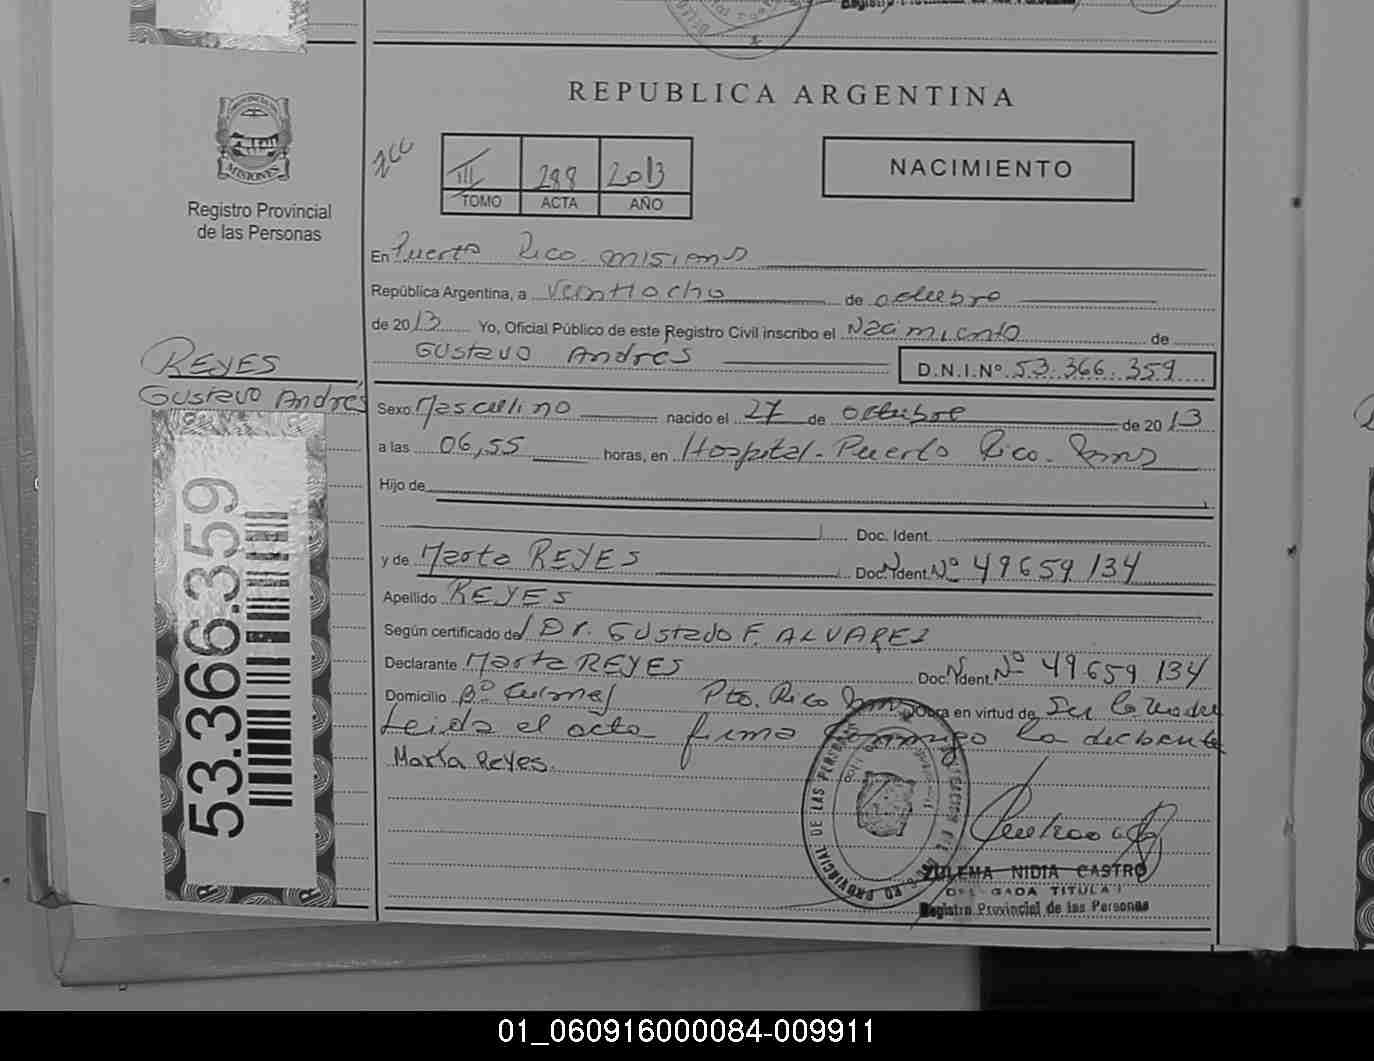 REPUBLICA ARGENTINA
MISIONES
Registro Provincial
de las Personas
III 288 2013
TOMO ACTA AÑO
NACIMIENTO
En Puerto Rico. misiones
República Argentina, a veintiocho de octubre
de 2013 Yo, Oficial Público de este Registro Civil inscribo el Nacimiento de
Gustavo Andres D.N.I.Nº 53.366.359
REYES
Gustavo Andrés
Sexo Masculino nacido el 27 de octubre de 2013
a las 06,55 horas, en Hospital - Puerto Rico. Mnes
Hijo de
Doc. Ident.
y de Marta REYES Doc. N Ident. Nº 49659134
Apellido REYES
Según certificado del Dr. GUSTAVO F. ALVAREZ
Declarante Marta REYES Doc. N Ident. Nº 49659134
Domicilio Bº Pto. Rico Mnes Obra en virtud de Ser la madre
Leida el acta firma conmigo la declarante
Marta Reyes.
53.366.359
ZULEMA NIDIA CASTRO
DELEGADA TITULAR
Registro Provincial de las Personas
01_060916000084-009911